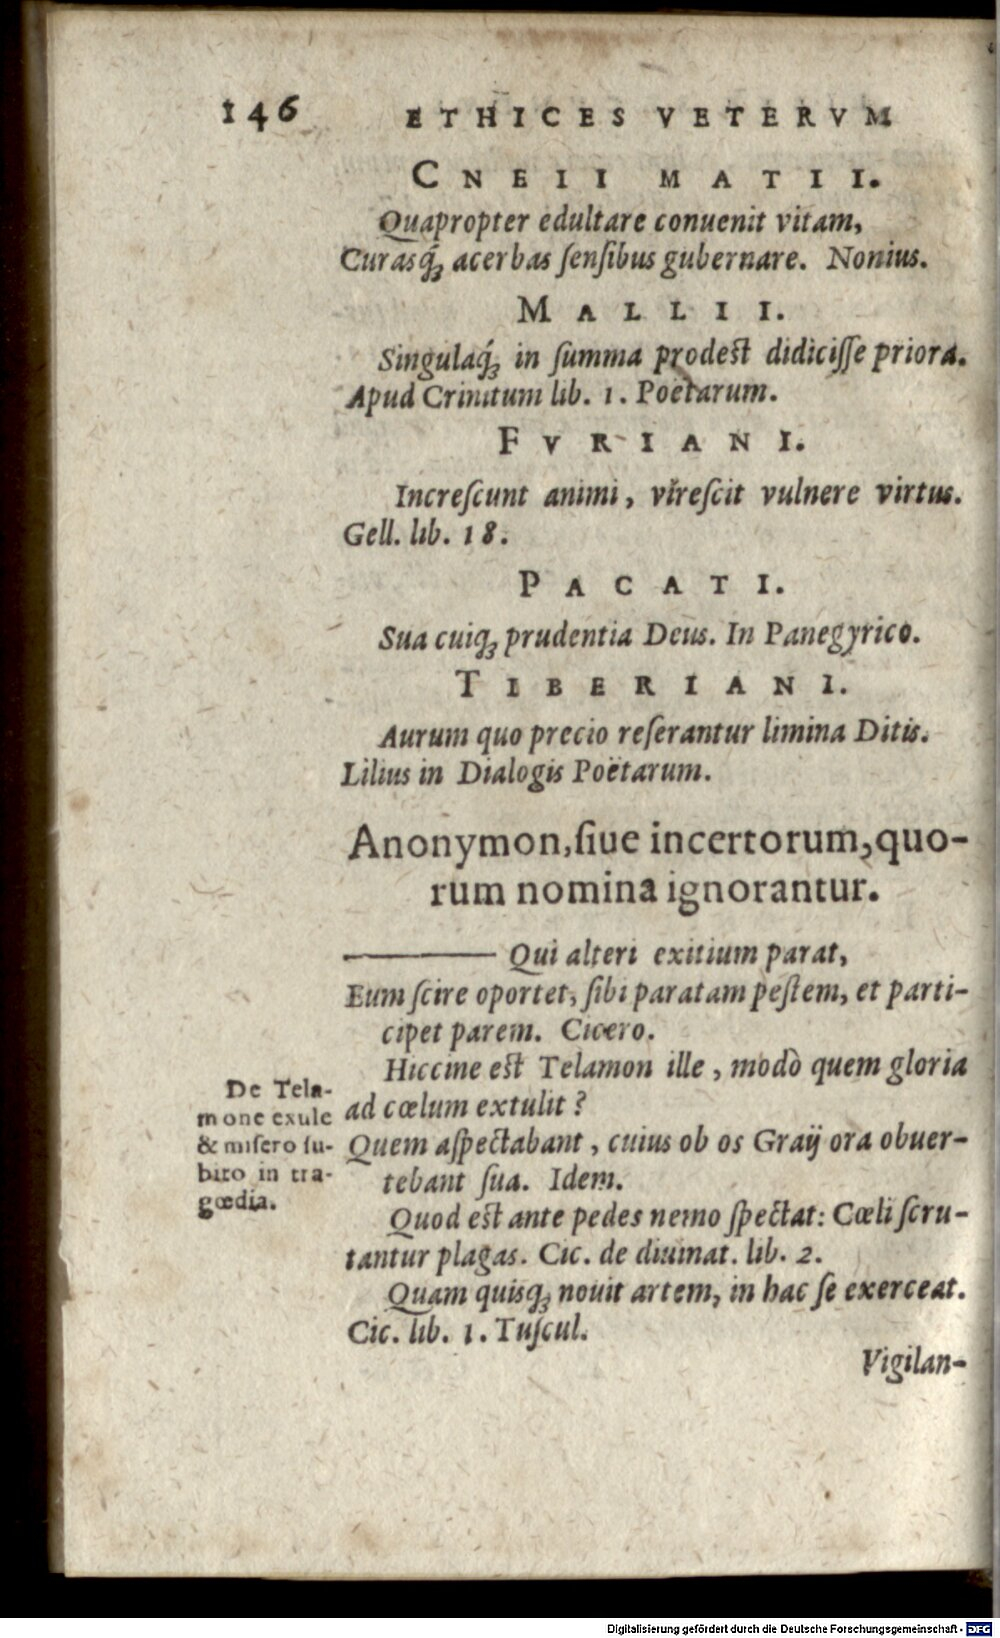 146 ETHICES VETERVM
CNEII MATII.
Quapropter edultare conuenit vitam,
Curasq́ꝫ acerbas ſenſibus gubernare. Nonius.
MALLII.
Singulaq́ꝫ in ſumma prodest didiciſſe priora.
Apud Crinitum lib. 1. Poëtarum.
FVRIANI.
Increſcunt animi, vireſcit vulnere virtus.
Gell. lib. 18.
PACATI.
Sua cuiqꝫ prudentia Deus. In Panegyrico.
TIBERIANI.
Aurum quo precio reſerantur limina Ditis.
Lilius in Dialogis Poëtarum.
Anonymon, ſiue incertorum, quo-
rum nomina ignorantur.
——— Qui alteri exitium parat,
Eum ſcire oportet, ſibi paratam peſtem, et parti-
cipet parem. Cicero.
Hiccine est Telamon ille, modò quem gloria
ad cœlum extulit?
Quem aſpectabant, cuius ob os Graij ora obuer-
tebant ſua. Idem.
De Tela-
mone exule
& miſero ſu-
bito in tra-
gœdia.
Quod est ante pedes nemo ſpectat: Cœli ſcru-
tantur plagas. Cic. de diuinat. lib. 2.
Quam quisqꝫ nouit artem, in hac ſe exerceat.
Cic. lib. 1. Tuſcul.
Vigilan-
Digitalisierung gefördert durch die Deutsche Forschungsgemeinschaft - DFG